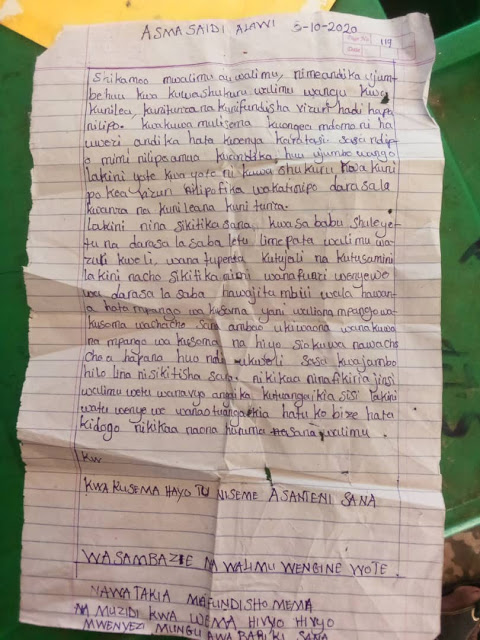 ASMA SAIDI ALAWI 5-10-2020
Page No. 117
Date
Shikamoo mwalimu au walimu, nimeandika ujum-
be huu kwa kuwashukuru walimu wangu kwa
kunilea, kunitunza na kunifundisha vizuri hadi hapa
nilipo. Kwakuwa mulisema kuongea mdomoni ha
uwezi andika hata kwenya karatasi sasa ndip-
o mimi nilipoamua kuandika huu ujumbe wangu
lakini yote kwa yote ni kuwashukuru kwa kuni
pokea vizuri nilipofika wakati nipo darasa la
kwanza na kunileana kunitunza.
Lakini nina sikitika sana, kwasababu shule ye-
tu na darasa la saba letu limepata walimu wa-
zuri kweli, wana tupenda kutujali na kutusamini
lakini nacho sikitika nini wanafunzi wenyewe
wa darasa la saba hawajitambui wala hawan-
a hata mpango wa kusoma yani waliona mpango wa
kusoma wachache sana ambao ukiwaona wanakuwa
na mpango wa kusoma na hiyo siokuwa nawach
hapana huo ndi ukweli sasa kwa jambo
hilo lina nisikitisha sana. nikikaa ninafikiria jinsi
walimu wetu wanavyo angaika kutuangaikia sisi lakini
watu wenyewe wanaotuangaikia hatuko bize hata
kidogo nikikaa naona huruma sana walimu.
Kw
KWA KUSEMA HAYO TU NISEME ASANTENI SANA
WASAMBAZIE NA WALIMU WENGINE WOTE.
NAWATAKIA MAFUNDISHO MEMA
NA MUZIDI KWA WEMA HIVYO HIVYO
MWENYEZI MUNGU AWABARIKI SANA